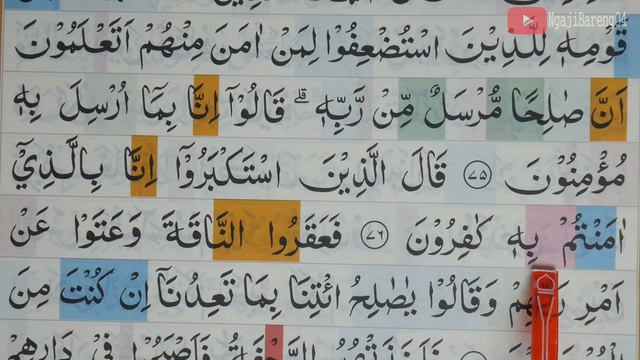 NgajiBareng04
قَوْمِهٖ لِلَّذِيْنَ اسْتُضْعِفُوْا لِمَنْ اٰمَنَ مِنْهُمْ اَتَعْلَمُوْنَ
اَنَّ صٰلِحًا مُّرْسَلٌ مِّنْ رَّبِّهٖۗ قَالُوْٓا اِنَّا بِمَآ اُرْسِلَ بِهٖ
مُؤْمِنُوْنَ ٧٥ قَالَ الَّذِيْنَ اسْتَكْبَرُوْٓا اِنَّا بِالَّذِيْٓ
اٰمَنْتُمْ بِهٖ كٰفِرُوْنَ ٧٦ فَعَقَرُوا النَّاقَةَ وَعَتَوْا عَنْ
اَمْرِ رَبِّهِمْ وَقَالُوْا يٰصٰلِحُ ائْتِنَا بِمَا تَعِدُنَآ اِنْ كُنْتَ مِنَ
فِيْ دَارِهِمْ